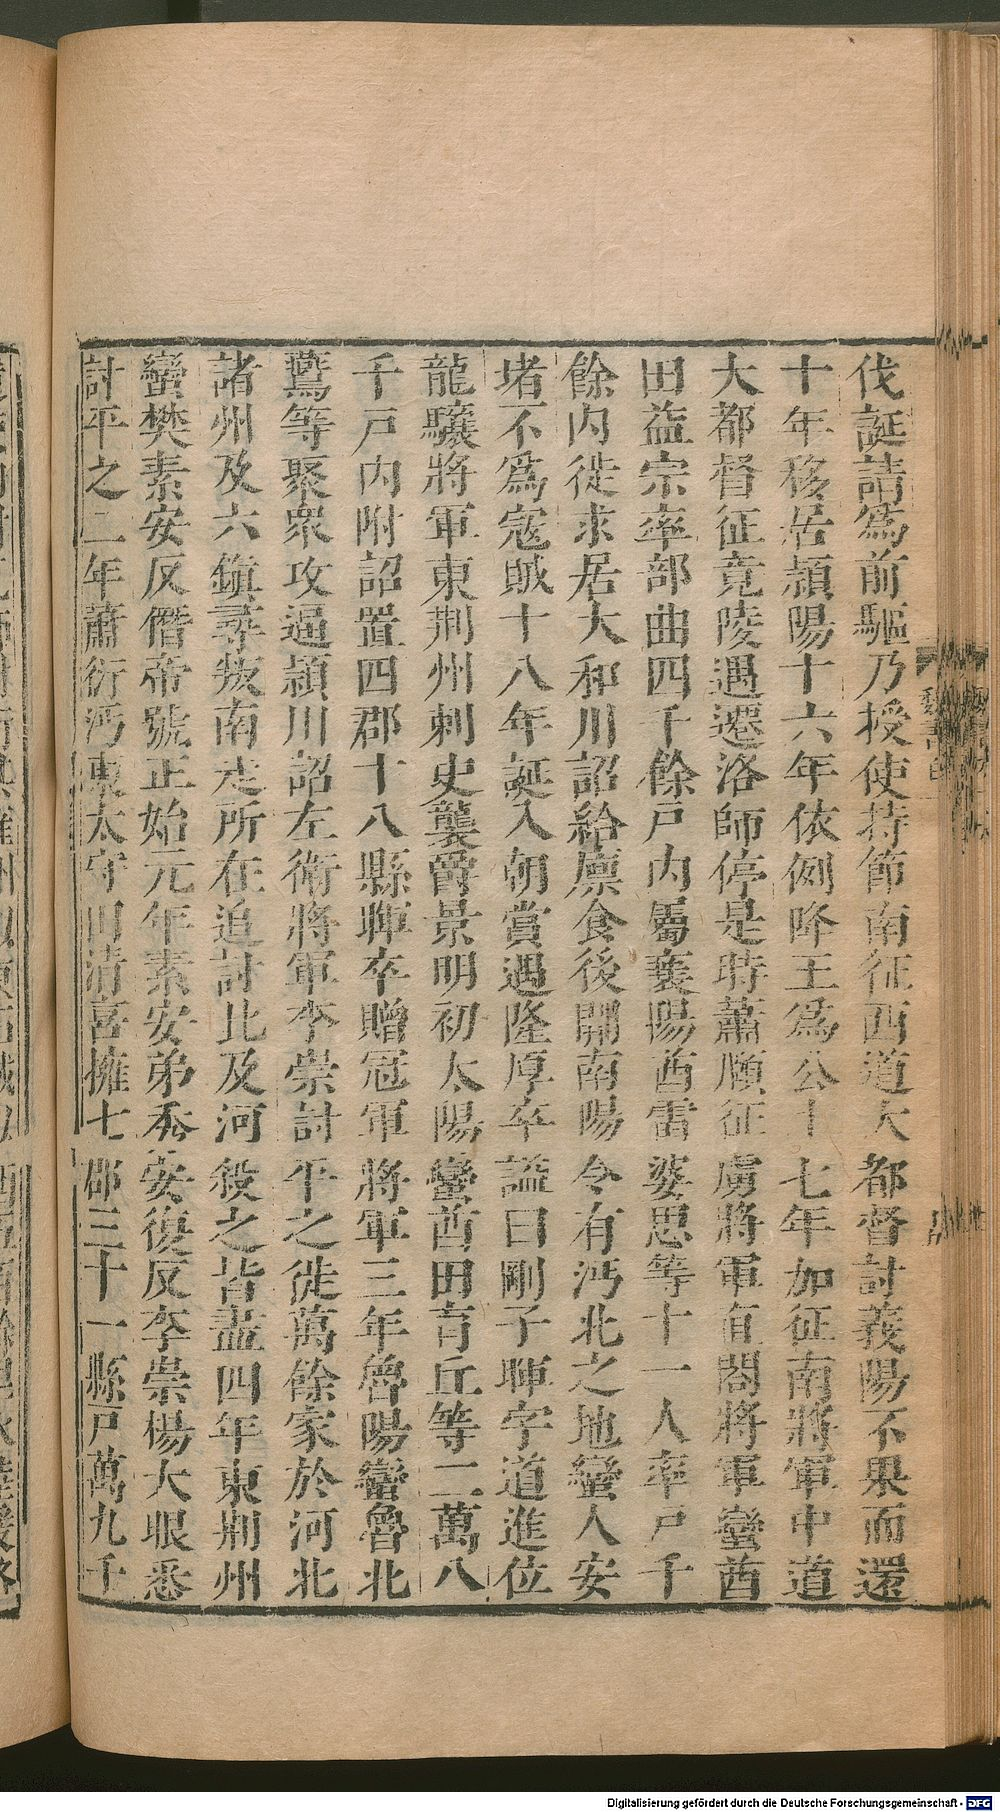 伐誕請爲前驅乃授使持節南征西道大都督討義陽不果而還
十年移居潁陽十六年依例降王爲公十七年加征南將軍中道
大都督征竟陵遇遷洛師停是時蕭順征虜將軍直閤將軍蠻酋
田益宗率部曲四千餘戶內屬襄陽酋雷婆思等十一人率戶千
餘內徙求居大和川詔給廩食後開南陽令有沔北之地蠻人安
堵不爲寇賊十八年誕入朝賞遇隆厚卒謚曰剛子暉字道進位
龍驤將軍東荆州刺史襲爵景明初太陽蠻酋田育丘等二萬八
千戶內附詔置四郡十八縣暉卒贈冠軍將軍三年魯陽蠻魯北
鷰等聚衆攻逼潁川詔左衛將軍李崇討平之徙萬餘家於河北
諸州及六鎮尋叛南走所在追討比及河殺之皆盡四年東荆州
蠻樊素安反僭帝號正始元年素安弟秀安復反李崇楊大眼悉
討平之二年蕭衍沔東太守田清喜擁七郡三十一縣戶萬九千
Digitalisierung gefördert durch die Deutsche Forschungsgemeinschaft - DFG